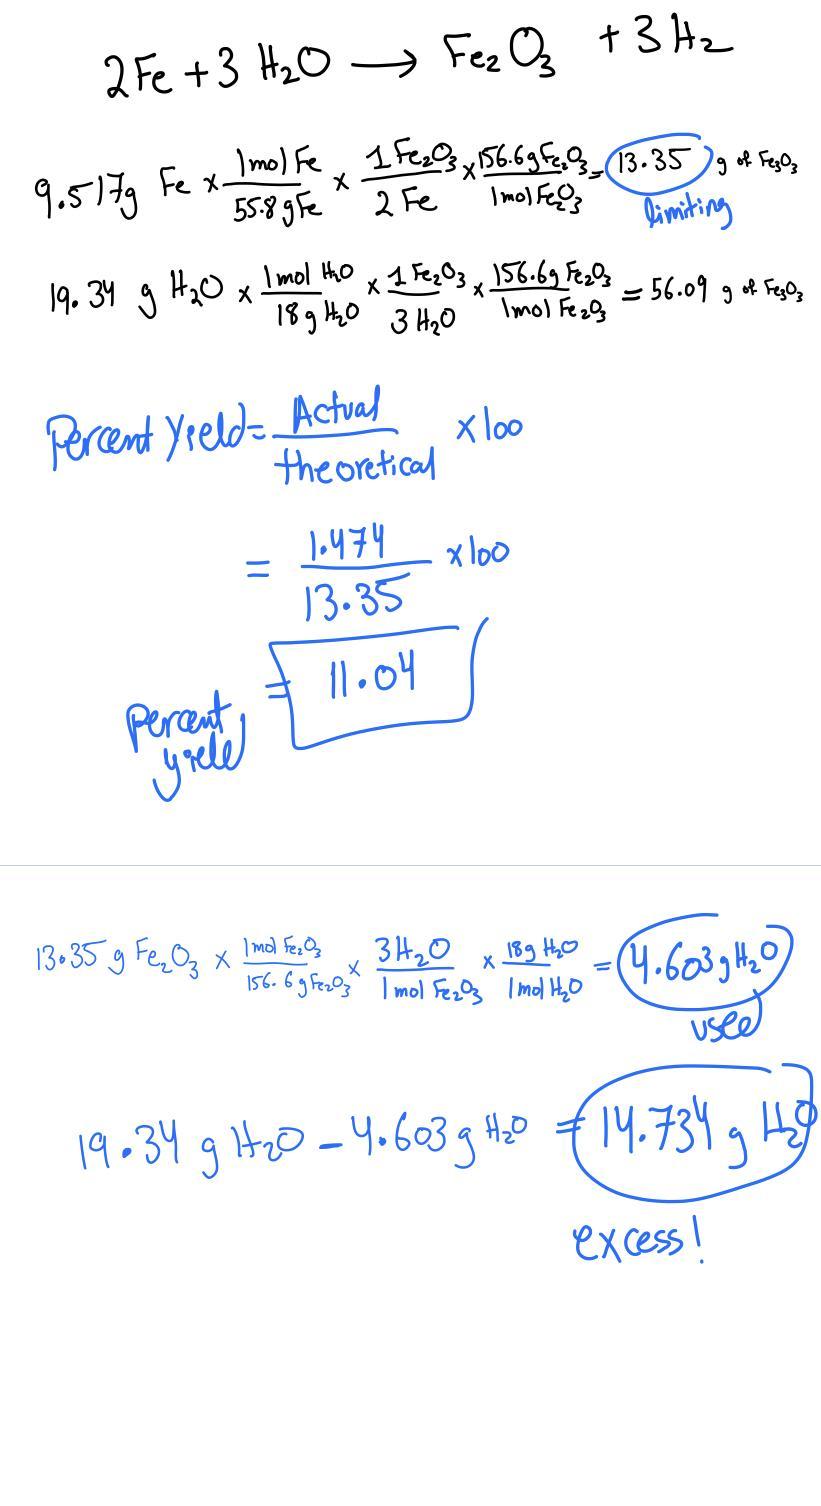 2Fe + 3 H₂O → Fe₂O₃ + 3H₂
9.517g Fe × 1mol Fe / 55.8 g Fe × 1 Fe₂O₃ / 2 Fe × 156.6g Fe₂O₃ / 1mol Fe₂O₃ = 13.35 g of Fe₃O₃
limiting
19.34 g H₂O × 1mol H₂O / 18g H₂O × 1 Fe₂O₃ / 3 H₂O × 156.6g Fe₂O₃ / 1mol Fe₂O₃ = 56.09 g of Fe₃O₃
Percent Yield = Actual / theoretical × 100
= 1.474 / 13.35 × 100
= 11.04
percent
yield
13.35 g Fe₂O₃ × 1mol Fe₂O₃ / 156.6g Fe₂O₃ × 3H₂O / 1mol Fe₂O₃ × 18g H₂O / 1mol H₂O = 4.603g H₂O
used
19.34 g H₂O - 4.603g H₂O = 14.734 g H₂O
excess!